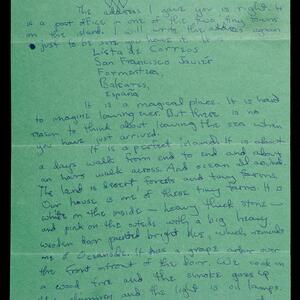 The address I gave you is right. It
is a post office in one of the two tiny towns
on the island. I will write the address again
just to be sure you have it. It is
Lista de Correos
San Francisco Javier
Formentera,
Baleares,
España
It is a magical place. It is hard
to imagine leaving ever. But there is no
reason to think about leaving the sea when
you have just arrived.
It is a perfect island. It is about
a days walk from end to end and about
an hours walk across. And ocean all around.
The land is desert forests and tiny farms.
Our house is one of these tiny farms. It is
white on the inside – heavy thick stone –
and pink on the outside with a big heavy
wooden door painted bright blue, which reminds
me of Oceanside. It has a grape arbor over
the front of the door. We cook on
a wood fire and the smoke goes up
the chimney and the light is oil lamps.